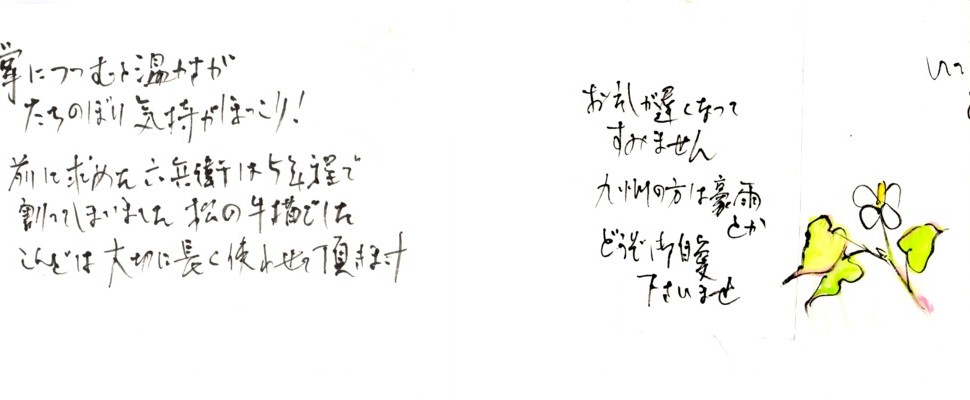 掌につつむと温かさが
たちのぼり気持がほっこり!
前に求めた六兵衛は5年程で
割ってしまいました 松の手描でした
こんどは大切に長く使わせて頂きます
お礼が遅くなって
すみません
九州の方は豪雨
とか
どうぞ御自愛
下さいませ
いつ